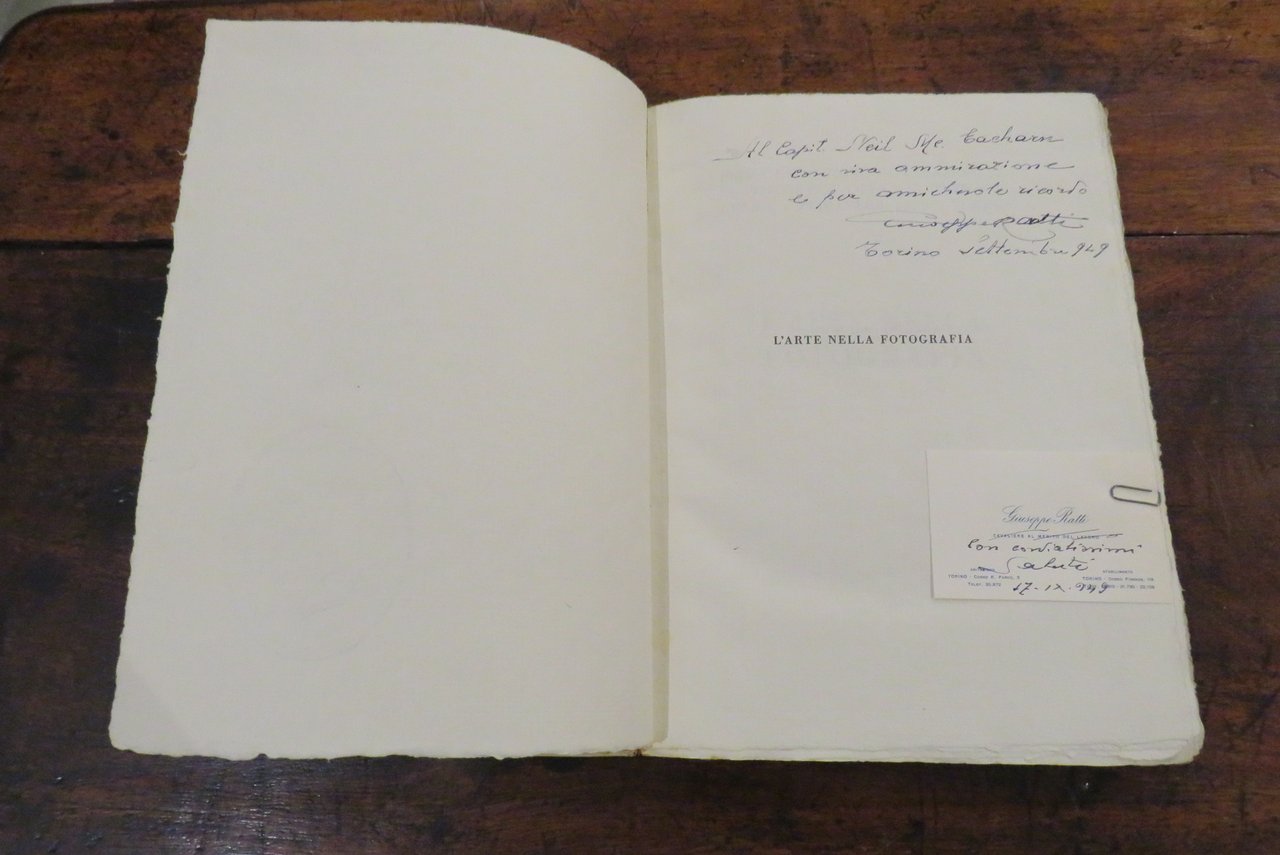 Al Capit Neil Mc. Eacharn
con viva ammirazione
e per amichevole ricordo
Giuseppe Ratti
Torino Settembre 949
L'ARTE NELLA FOTOGRAFIA
Giuseppe Ratti
CAVALIERE AL MERITO DEL LAVORO
Con cordialissimi
Saluti
STABILIMENTO
TORINO - CORSO
TORINO - CORSO
TELEF.
17-IX-949